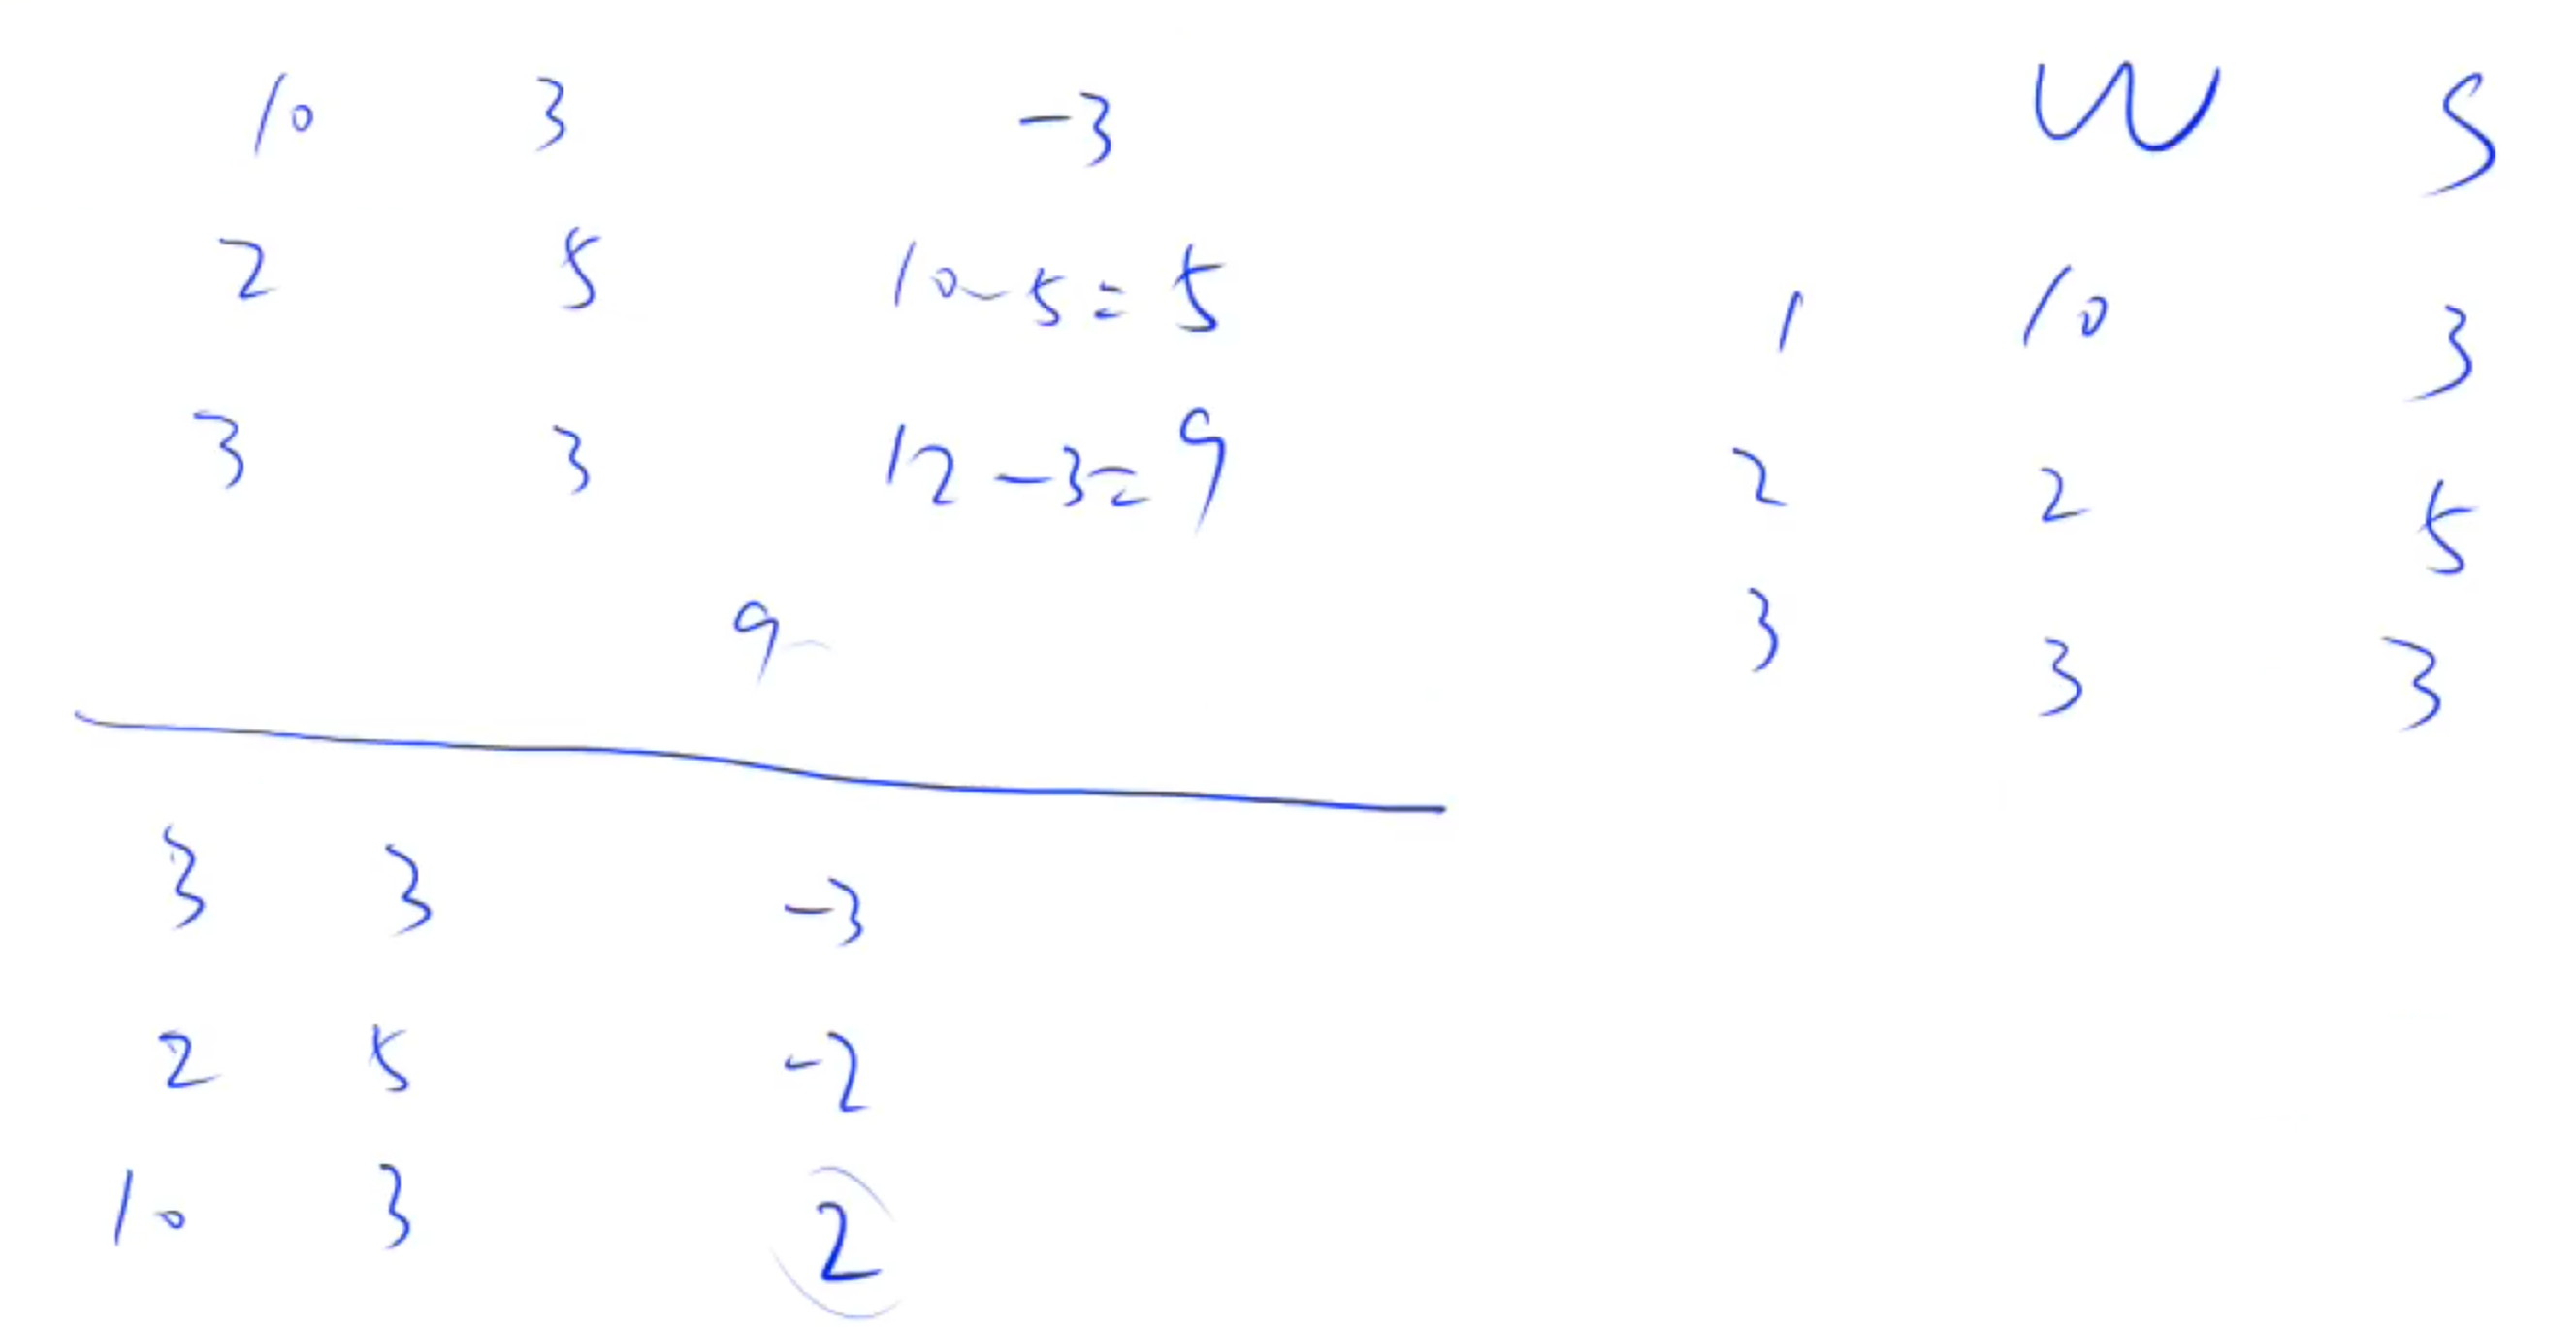 10 3 -3
2 5 10-5=5
3 3 12-3=9
9
3 3 -3
2 5 -2
10 3 2
W S
1 10 3
2 2 5
3 3 3